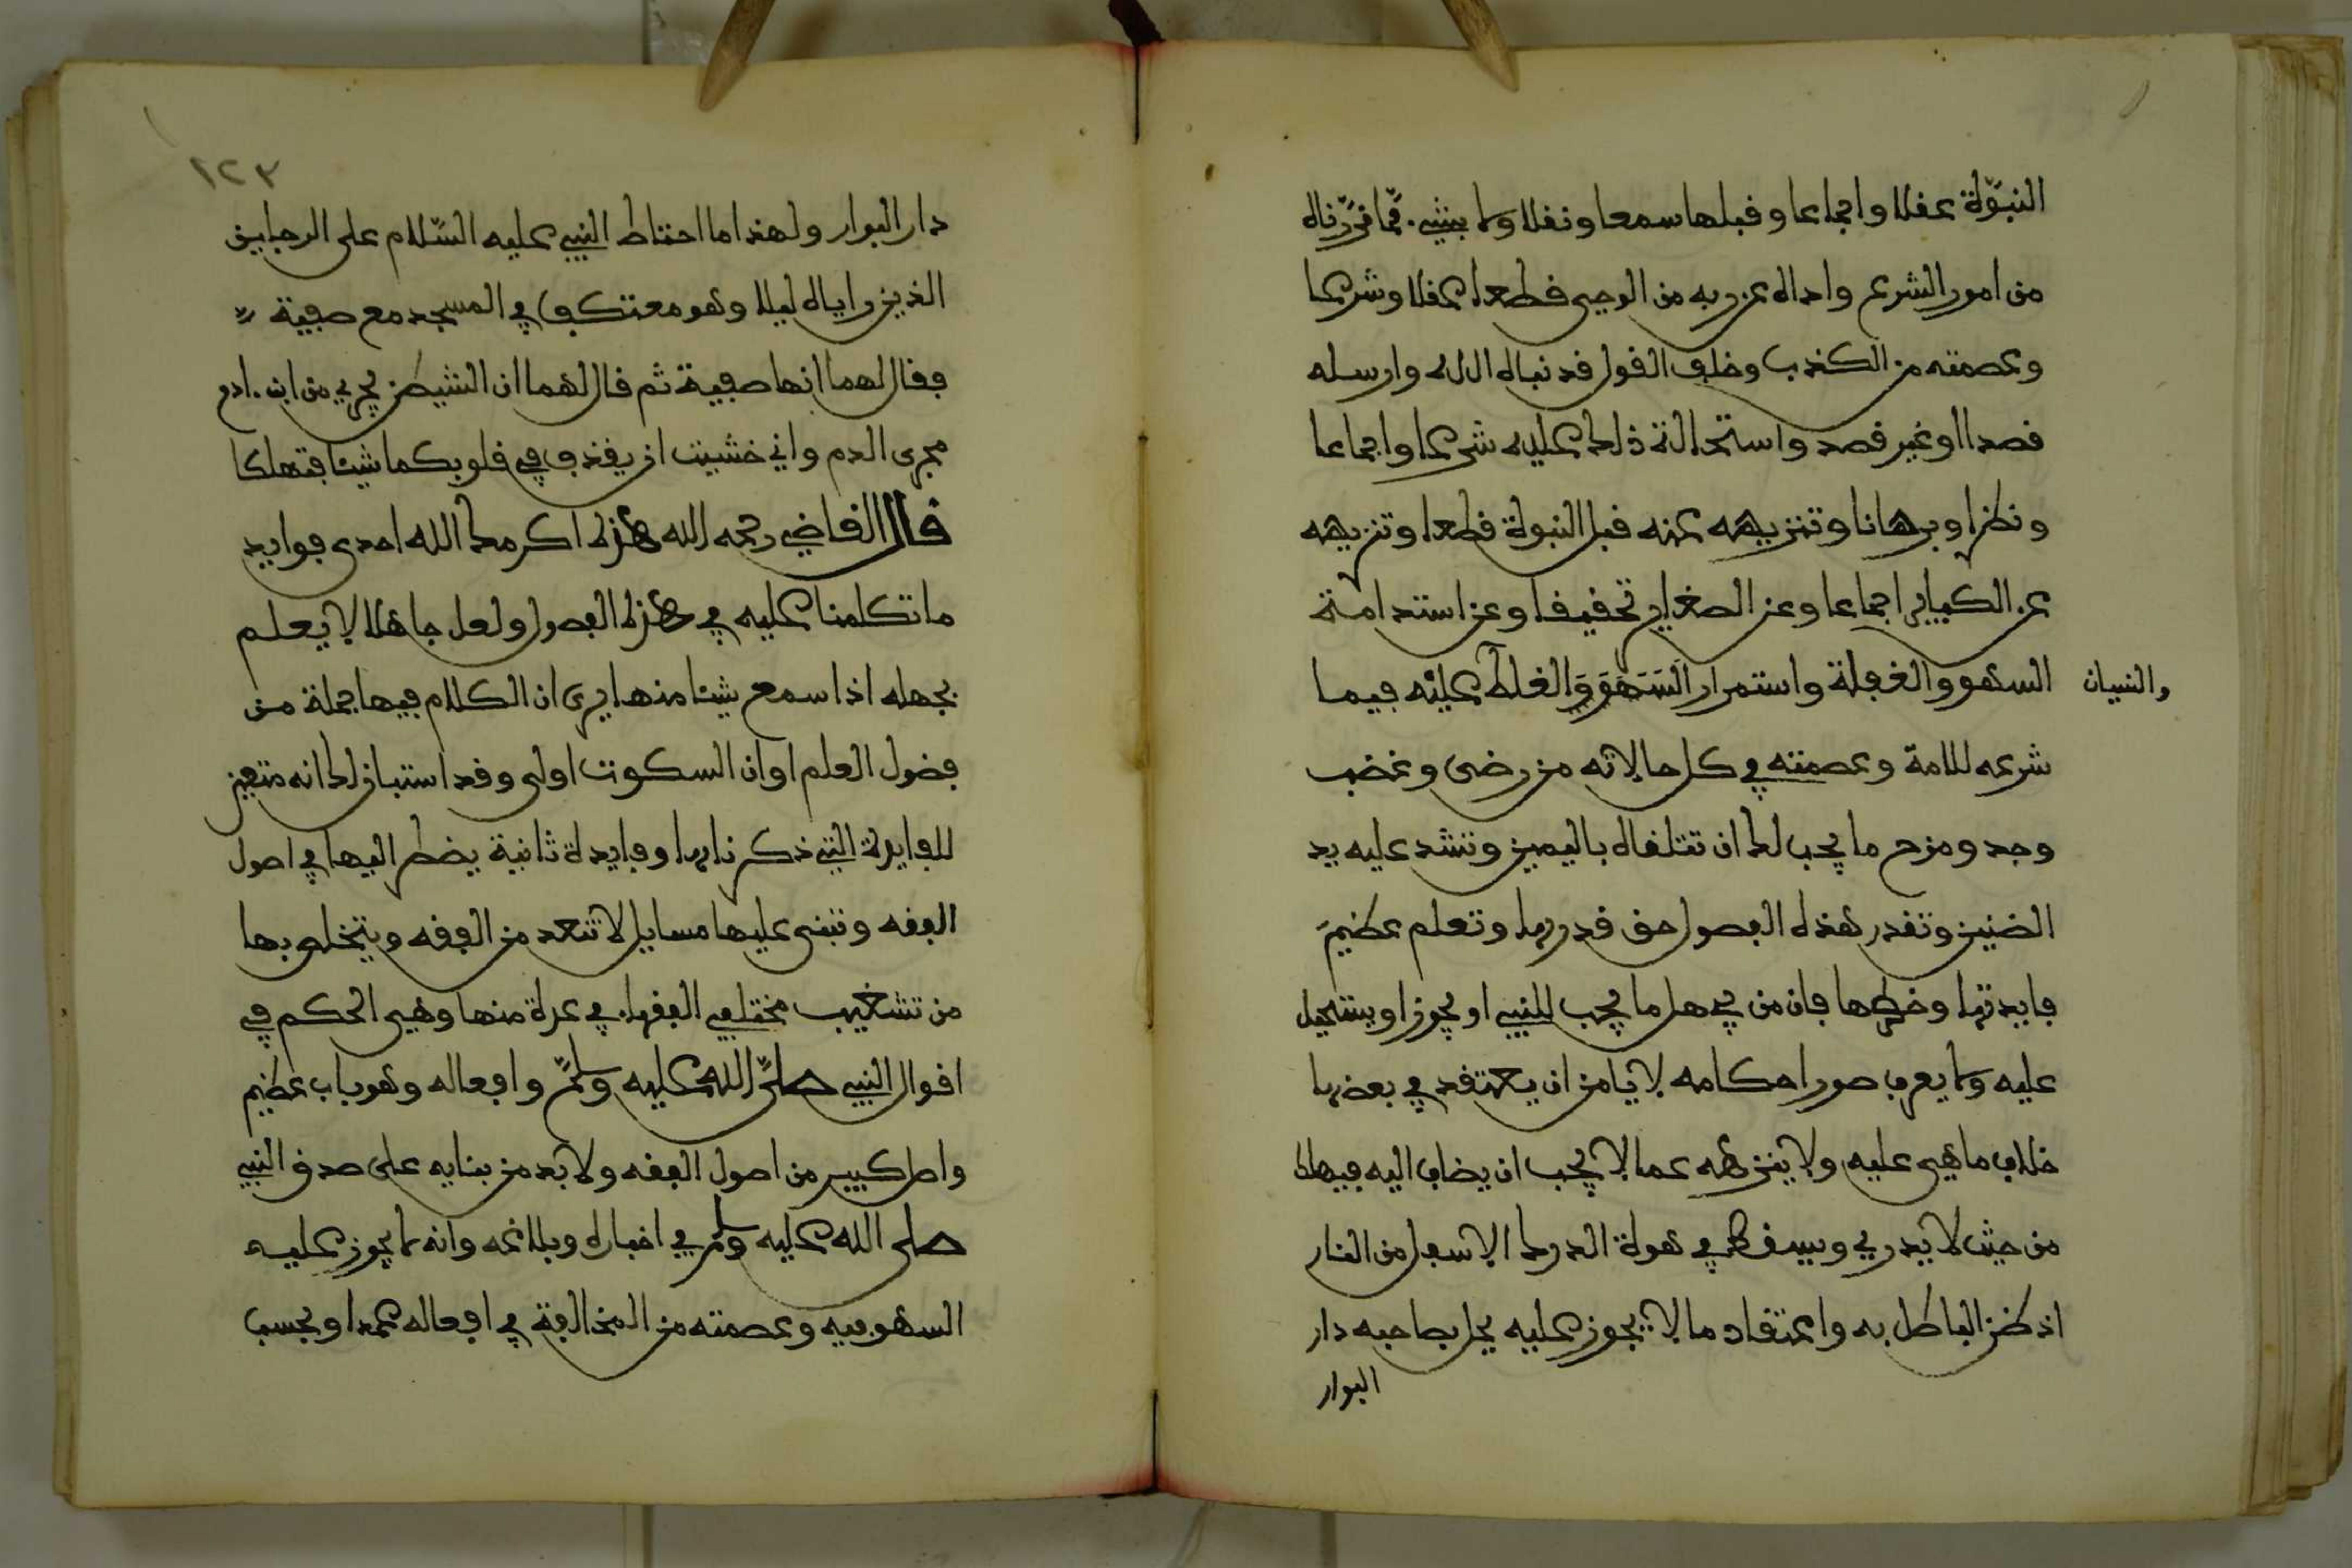 النبوة عقلا واجماعا وقبلها سمعا ونقلا ولا بشيء مما قررناه
من امور الشرع واداه عن ربه من الوحي قطعا عقلا وشرعا
وعصمته من الكذب وخلف القول مذ نباه الله وارسله
قصدا او غير قصد واستحالة ذلك عليه شرعا واجماعا
ونظرا وبرهانا وتنزيهه عنه قبل النبوة قطعا وتنزيهه
عن الكباير اجماعا وعن الصغاير تحقيقا وعن استدامة
السهو والغفلة واستمرار السهو والغلط عليه فيما
والنسيان
شرعه للامة وعصمته في كل حالاته من رضى وغضب
وجد ومزح ما يجب لك ان تتلقاه باليمين وتشد عليه يد
الضنين وتقدر هذه الفصول حق قدرها وتعلم عظيم
فايدتها وخطرها فان من يجهل ما يجب للنبي او يجوز او يستحيل
عليه ولا يعرف صور احكامه لا يامن ان يعتقد في بعضها
خلاف ما هي عليه ولا ينزهه عما لا يجب ان يضاف اليه فيهلك
من حيث لا يدري ويسقط في هوة الدرك الاسفل من النار
اذ ظن الباطل به واعتقاد ما لا يجوز عليه يحل بصاحبه دار
البوار
١٢٣
دار البوار ولهذا ما احتاط النبي عليه السلام على الرجلين
الذين راياه ليلا وهو معتكف في المسجد مع صفية
فقال لهما انها صفية ثم قال لهما ان الشيطن يجري من ابن ادم
مجرى الدم واني خشيت ان يقذف في قلوبكما شيئا فتهلكا
قال القاضي رحمه الله هذه اكرمك الله احدى فوايد
ما تكلمنا عليه في هذه الفصول ولعل جاهلا لا يعلم
بجهله اذا سمع شيئا منها يرى ان الكلام فيها جملة من
فضول العلم او ان السكوت اولى وقد استبان لك انه متعين
للفايدة التي ذكرناها وفايدة ثانية يضطر اليها في اصول
الفقه وتبنى عليها مسايل لا تنعد من الفقه ويتخلص بها
من تشغيب مختلفي الفقهاء في عدة منها وهي الحكم في
اقوال النبي صلى الله عليه وسلم وافعاله وهو باب عظيم
واصل كبير من اصول الفقه ولا بد من بنايه على صدق النبي
صلى الله عليه وسلم في اخباره وبلاغه وانه لا يجوز عليه
السهو فيه وعصمته من المخالفة في افعاله عمدا وبحسب